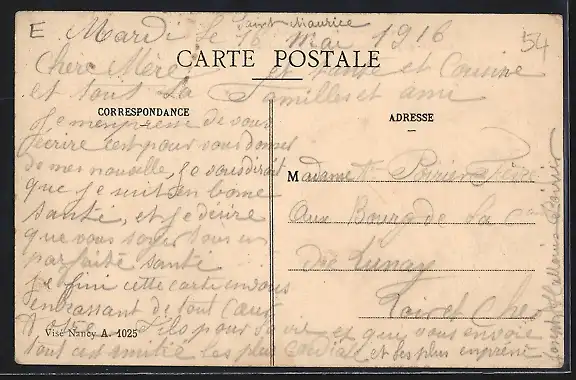 E
54
Saint Maurice
Mardi le 16 mai 1916
CARTE POSTALE
Chère Mère et tante et Cousine
et tout la Familles et ami
CORRESPONDANCE
Je m'empresse de vous
écrire c'est pour vous donner
de mes nouvelle, Je vous dirait
que je suit en bonne
Santé, et je désire
que vous soyer tous en
parfaite santé
Je fini cette carte en vous
embrassant de tout Cœur
Votre Fils pour la vie et que vous envoie
tout ces amitié les plus Cordiale et les plus empréné
Visé Nancy A. 1025
ADRESSE
Madame
Aux Bourg de la
de Lunay
Loir et Cher